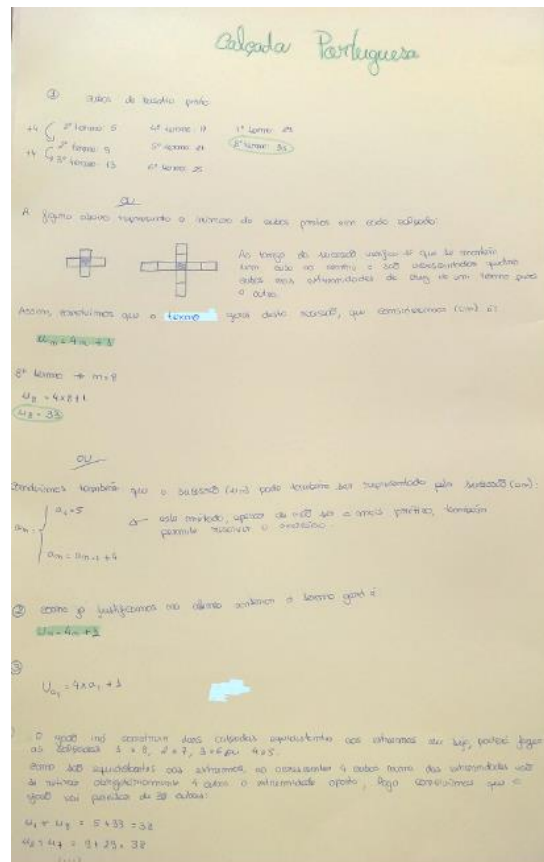 Calçada Portuguesa
① cubos de basalto preto
+4 1º termo: 5 4º termo: 17 7º termo: 29
+4 2º termo: 9 5º termo: 21 8º termo: 33
3º termo: 13 6º termo: 25
ou
A figura abaixo representa o número de cubos pretos em cada calçada:
Ao longo da sucessão verifica-se que se mantém
um cubo no centro e são acrescentados quatro
cubos nas extremidades da cruz de um termo para
o outro.
Assim, concluímos que o termo geral desta sucessão, que consideramos (un) é:
un = 4n + 1
8º termo → n = 8
u8 = 4×8+1
u8 = 33
ou
Concluímos também que a sucessão (un) pode também ser representada pela sucessão (an):
an = a1 = 5
an = an-1 + 4
este método, apesar de não ser o mais prático, também
permite resolver o exercício.
② como já justificamos na alínea anterior o termo geral é
un = 4n + 1
③
Ua1 = 4×a1 + 1
O João irá construir duas calçadas equidistantes aos extremos ou seja, poderá fazer
as calçadas 1 e 8, 2 e 7, 3 e 6 ou 4 e 5.
como são equidistantes aos extremos, ao acrescentar 4 cubos numa das extremidades
se retirar obrigatoriamente 4 cubos a extremidade oposta, logo concluímos que o
João vai precisar de 38 cubos:
u1 + u8 = 5 + 33 = 38
u2 + u7 = 9 + 29 = 38